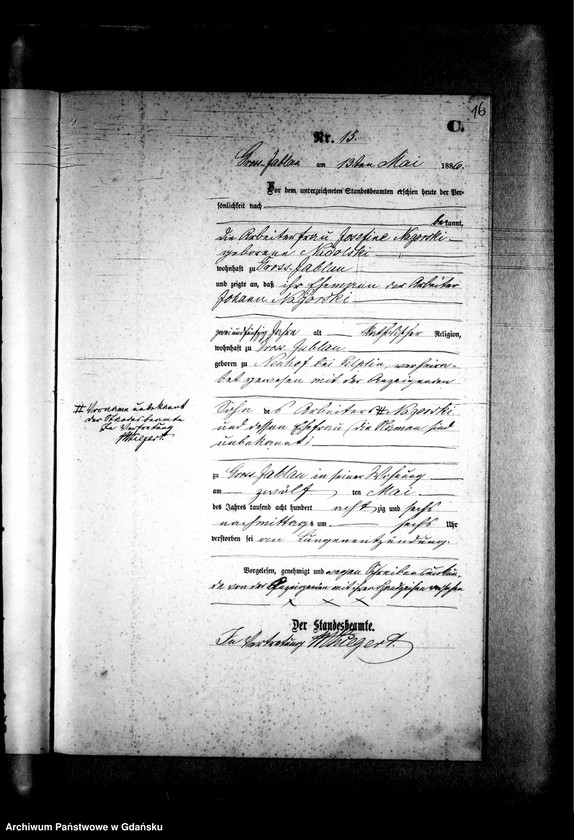 16
C.
Nr. 15.
Gross Jablau am 13ten Mai 1886.
Vor dem unterzeichneten Standesbeamten erschien heute der Per-
sönlichkeit nach
bekannt,
die Arbeiterfrau Josefine Nagorski
geborene Nadolski
wohnhaft zu Gross Jablau
und zeigte an, daß ihr Ehemann der Arbeiter
Johann Nagorski
zweiundfünfzig Jahre alt katholischer Religion,
wohnhaft zu Gross Jablau
geboren zu Neuhof bei Pelplin, verheira-
tet gewesen mit der Anzeigenden
Sohn des Arbeiters # Nagorski
und dessen Ehefrau (die Namen sind
unbekannt)
# Vorname unbekannt
der Standesbeamte
In Vertretung
zu Gross Jablau in seiner Wohnung
am zwölf ten Mai
des Jahres tausend acht hundert acht zig und sechs
nachmittags um sechs Uhr
verstorben sei an Lungenentzündung.
Vorgelesen, genehmigt und wegen Schreibensunkun-
de von der Anzeigenden mit ihren Handzeichen versehen
x x x
Der Standesbeamte.
In Vertretung
Archiwum Państwowe w Gdańsku